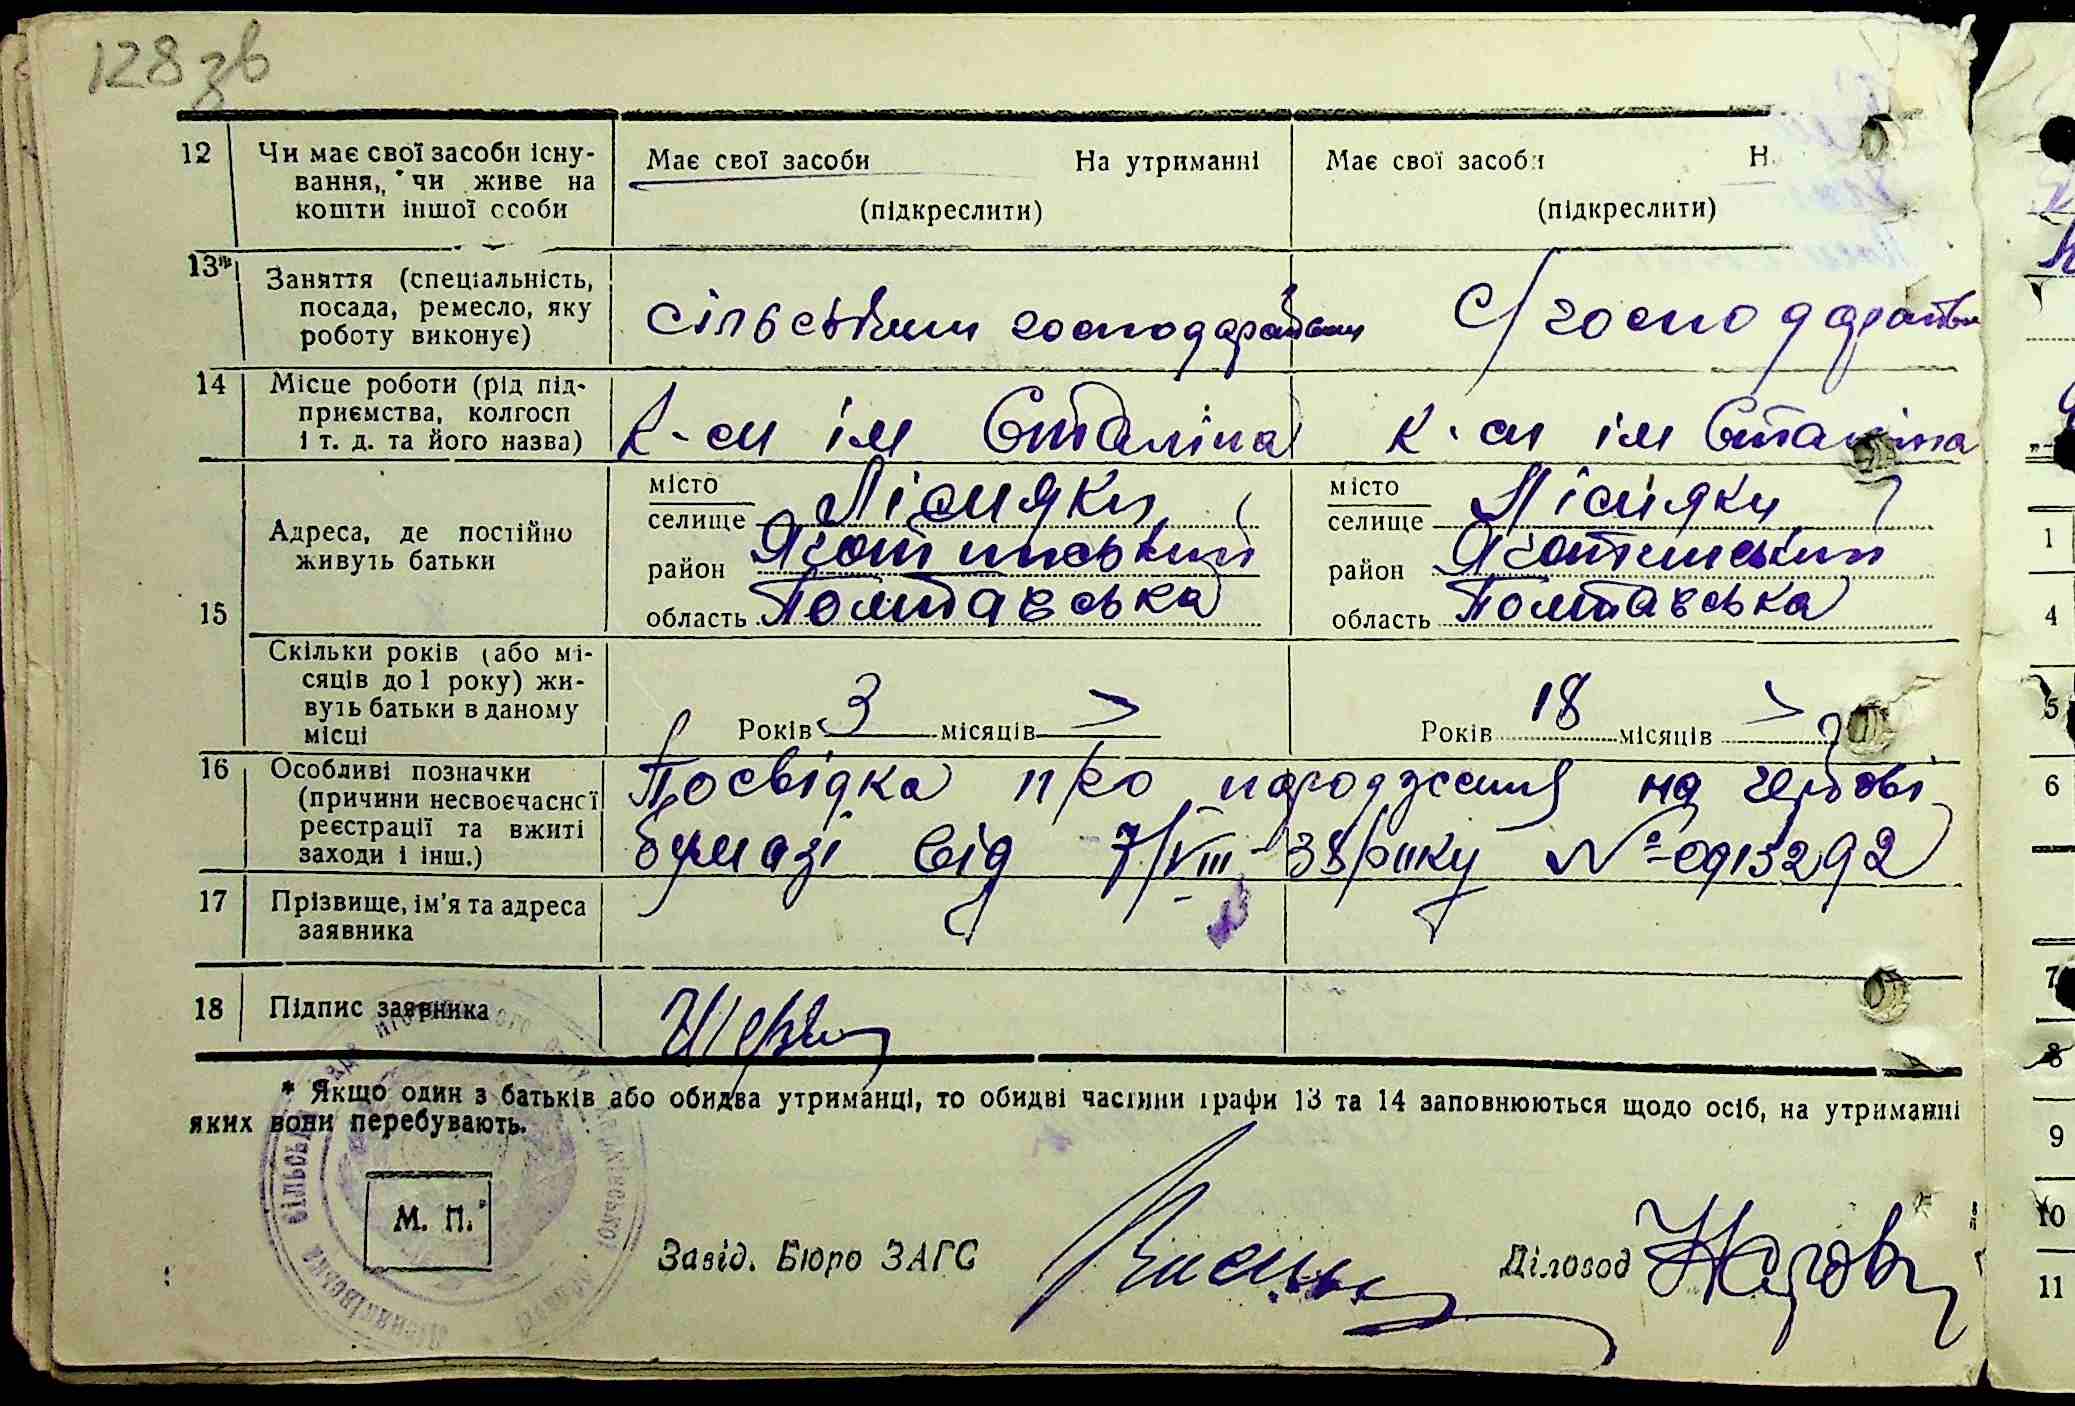 128 зв
12 Чи має свої засоби існу- Має свої засоби На утриманні Має свої засоби Н
вання, чи живе на
кошти іншої особи (підкреслити) (підкреслити)
13* Заняття (спеціальність,
посада, ремесло, яку сільським господарством С/господарством
роботу виконує)
14 Місце роботи (рід під-
приємства, колгосп К-сп ім Сталіна к-сп ім Сталіна
і т. д. та його назва)
15 Адреса, де постійно
живуть батьки
місто
селище Лісняки
район Яготинський
область Полтавська
місто
селище Лісняки
район Яготинський
область Полтавська
Скільки років (або мі-
сяців до 1 року) жи-
вуть батьки в даному
місці
Років 3 місяців Років 18 місяців
16 Особливі позначки
(причини несвоєчасної
реєстрації та вжиті
заходи і інш.)
Посвідка про народження на гербові
бумазі від 7/VIII-38 року №-0913292
17 Прізвище, ім'я та адреса
заявника
18 Підпис заявника
* Якщо один з батьків або обидва утриманці, то обидві частини графи 13 та 14 заповнюються щодо осіб, на утриманні
яких вони перебувають.
М. П.
Завід. Бюро ЗАГС Діловод
1
4
5
6
7
8
9
10
11